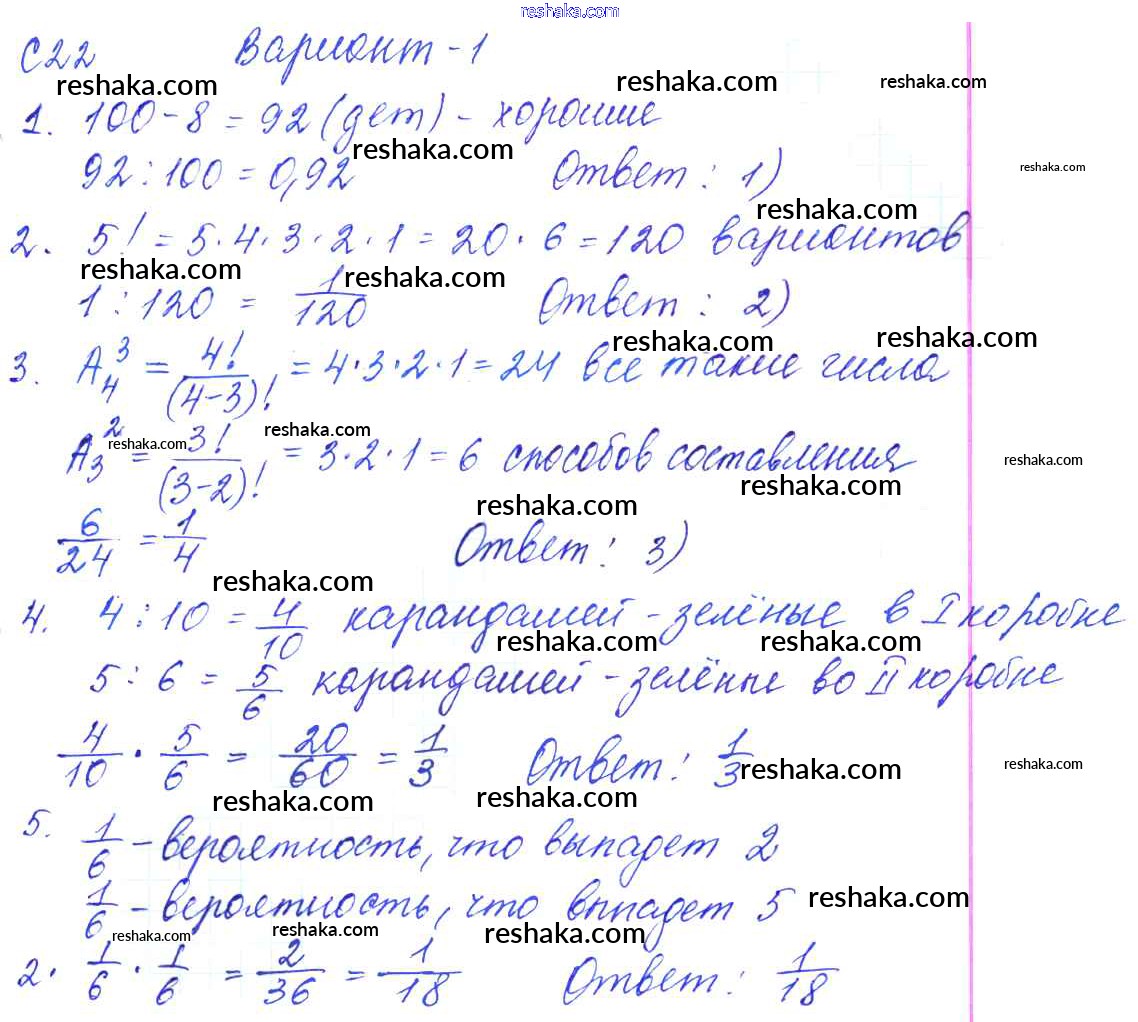 reshaka.com
С22 Вариант-1
reshaka.com reshaka.com reshaka.com
1. 100-8=92(дет)- хорошие
reshaka.com
92:100=0,92 Ответ: 1)
reshaka.com
reshaka.com
2. 5!=5·4·3·2·1=20·6=120 вариантов
reshaka.com reshaka.com
1:120 = 1/120 Ответ: 2)
reshaka.com reshaka.com
3. A₄³ = 4!/(4-3)! = 4·3·2·1=24 все такие числа
reshaka.com reshaka.com
A₃² = 3!/(3-2)! = 3·2·1=6 способов составления
reshaka.com
reshaka.com reshaka.com
6/24 = 1/4 Ответ: 3)
reshaka.com
4. 4:10 = 4/10 карандашей-зелёные в I коробке
reshaka.com reshaka.com
5:6 = 5/6 карандашей-зелёные во II коробке
4/10 · 5/6 = 20/60 = 1/3 Ответ: 1/3
reshaka.com reshaka.com
reshaka.com reshaka.com
5. 1/6 - вероятность, что выпадет 2
1/6 - вероятность, что выпадет 5
reshaka.com
reshaka.com reshaka.com reshaka.com
2· 1/6 · 1/6 = 2/36 = 1/18 Ответ: 1/18